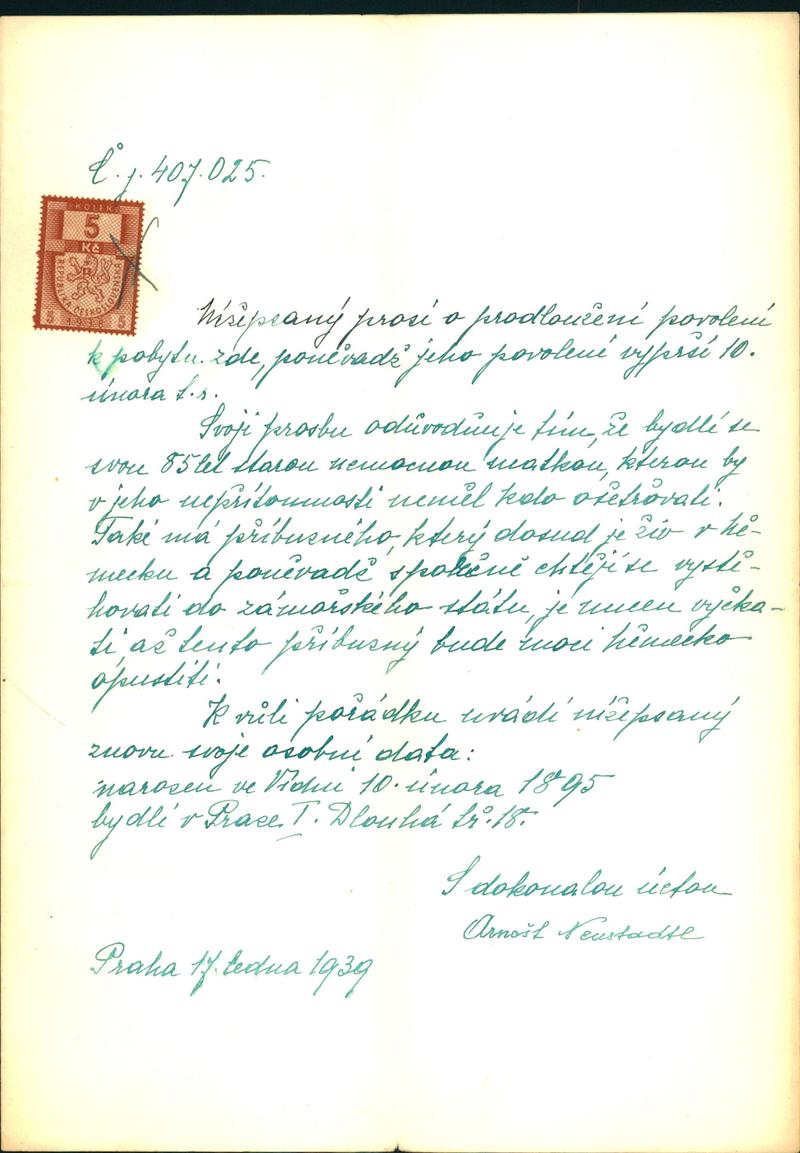 Č.j. 407.025.
KOLEK
5
Kč
REPUBLIKA ČESKOSLOVENSKÁ
5 1938 5
Nížepsaný prosí o prodloužení povolení
k pobytu zde, poněvadž jeho povolení vyprší 10.
února t.r.
Svoji prosbu odůvodňuje tím, že bydlí se
svou 85 let starou nemocnou matkou, kterou by
v jeho nepřítomnosti neměl kdo ošetřovati.
Také má příbuzného, který dosud je živ v Ně-
mecku a poněvadž společně chtějí se vystě-
hovati do zámořského státu, je nucen vyčka-
ti, až tento příbuzný bude moci Německo
opustiti.
K vůli pořádku uvádí nížepsaný
znovu svoje osobní data:
narozen ve Vídni 10. února 1895
bydlí v Praze I. Dlouhá tř. 18.
S dokonalou úctou
Arnošt Neustadtl
Praha 17. ledna 1939